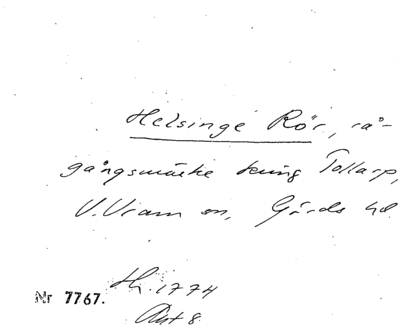 Helsinge Rör, rå-
gångsmärke kring Tollarp,
V. Vram sn, Gärds hd.
Hh. 1774
Nr 7767.
Akt 8